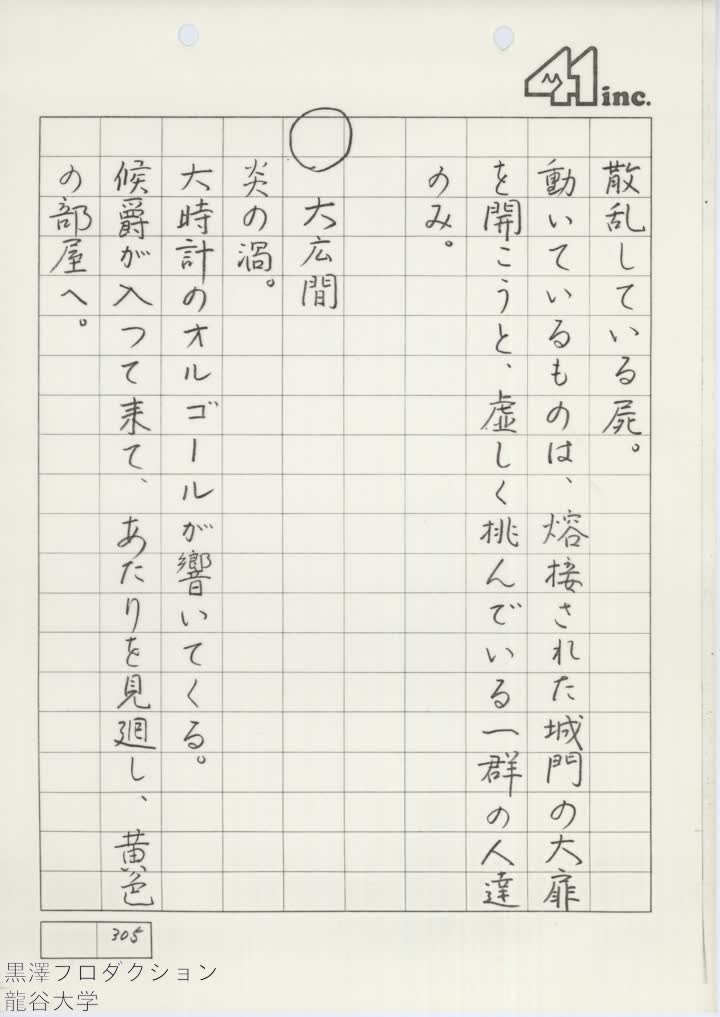 41 inc.
散乱している屍。
動いているものは、熔接された城門の大扉
を開こうと、虚しく挑んでいる一群の人達
のみ。
○ 大広間
炎の渦。
大時計のオルゴールが響いてくる。
候爵が入つて来て、あたりを見廻し、黄色
の部屋へ。
305
黒澤フロダクション
龍谷大学